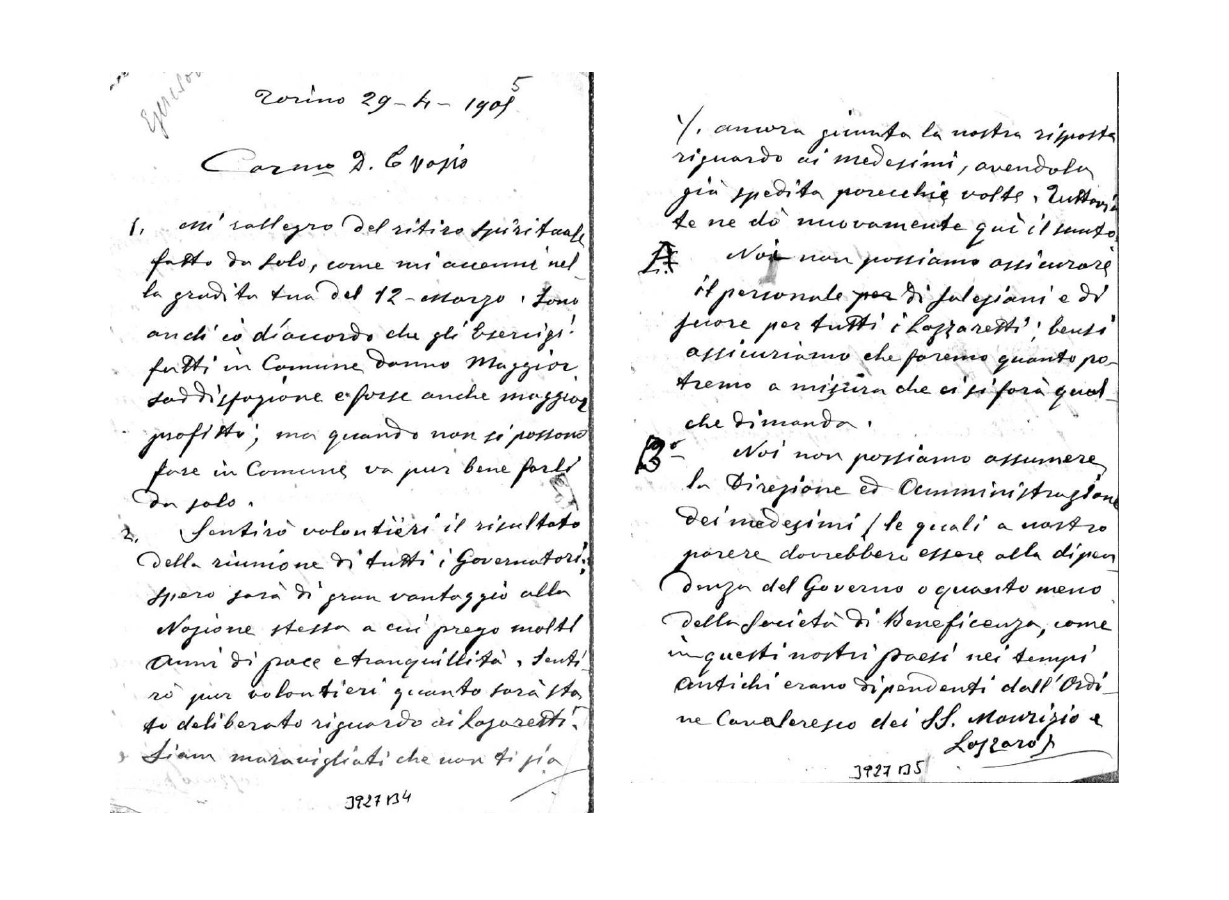 Torino 29-4-1905
Carmo D. Evasio
1. Mi rallegro del ritiro spirituale
fatto da solo, come mi accenni nel-
la gradita tua del 12-Marzo. Sono
anch'io d'accordo che gli Esercizi
fatti in Comune danno Maggior
soddisfazione e forse anche maggior
profitto; ma quando non si possono
fare in Comune va pur bene farli
da solo.
2. Sentirò volontieri il risultato
della riunione di tutti i Governatori:
spero sarà di gran vantaggio alla
Nazione stessa a cui prego molti
Anni di pace e tranquillità. Senti-
rò pur volontieri quanto sarà sta-
to deliberato riguardo ai lazaretti.
Siam maravigliati che non ti sia
3927 B4
/. ancora giunta la nostra risposta
riguardo ai medesimi, avendola
già spedita parecchie volte. Tuttavia
te ne dò nuovamente qui il sunto
A Noi non possiamo assicurare
il personale di Salesiani e di
suore per tutti i Lazzaretti: bensì
assicuriamo che faremo quanto po-
tremo a misura che ci si farà qual-
che dimanda.
B° Noi non possiamo assumere
la Direzione ed Amministrazione
dei medesimi (le quali a nostro
parere dovrebbero essere alla dipen
denza del Governo o quanto meno
della Società di Beneficenza, come
in questi nostri paesi nei tempi
Antichi erano dipendenti dall'Ordi-
ne Cavaleresco dei SS. Maurizio e
Lazzaro)
3927 B5